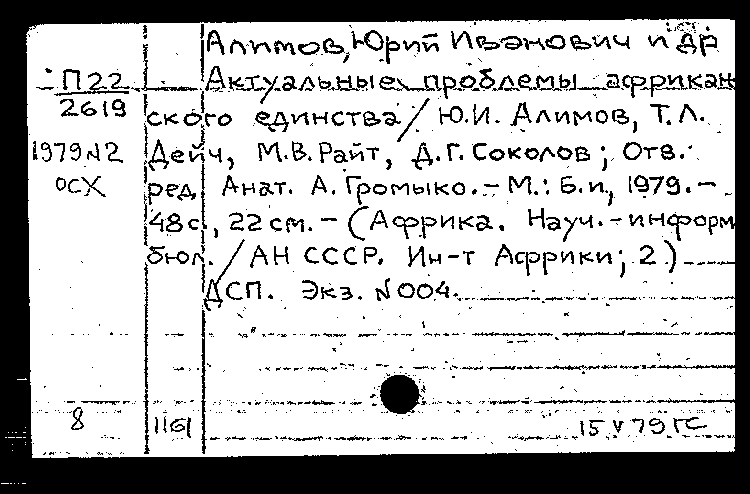 Алимов, Юрий Иванович и др
П22
2619
1979 N2
ОСХ
Актуальные проблемы африкан
ского единства / Ю.И. Алимов, Т.Л.
Дейч, М.В. Райт, Д.Г. Соколов; Отв.
ред. Анат. А. Громыко. – М.: Б.и, 1979. –
48 с., 22 см. – (Африка. Науч.-информ
бюл. / АН СССР. Ин-т Африки; 2.)
ДСП. Экз. N 004.
8
1161
15 V 79 ГС